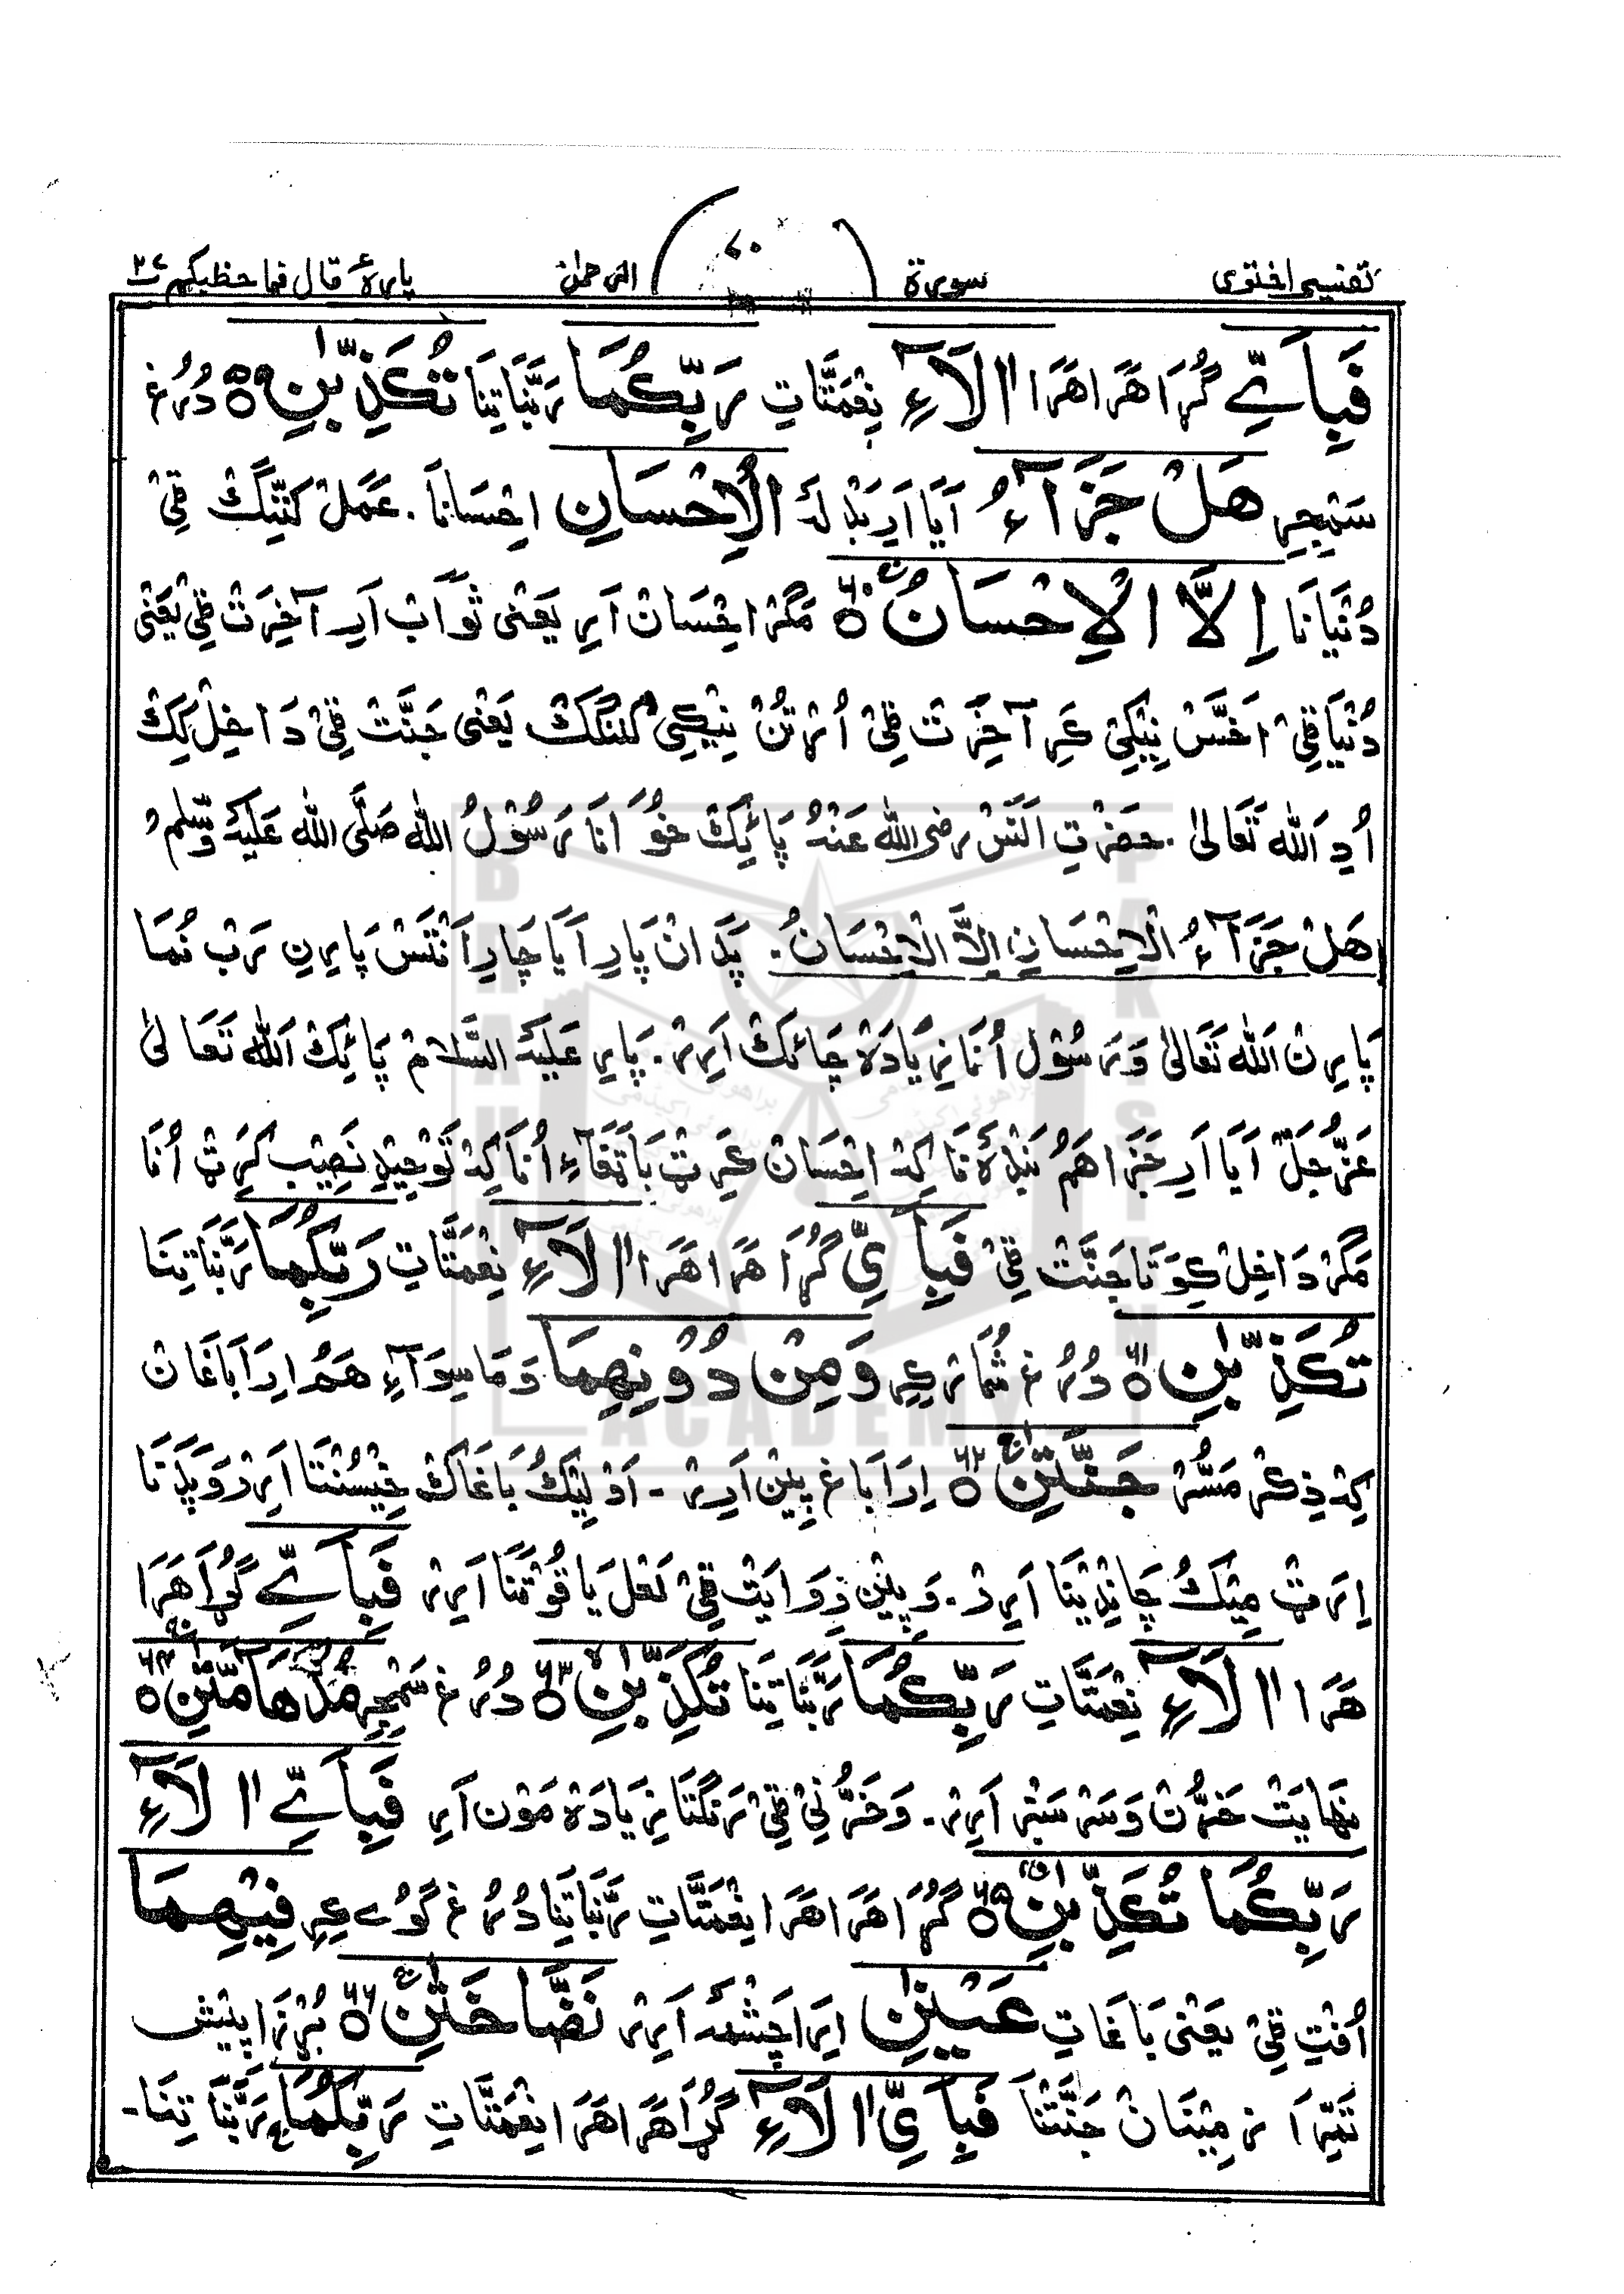 تفسیر اختوی سورة ۷۰ الرحمٰن پارهٔ قال فما خطبکم ۲۷
فَبِاَيِّ گُڑَا هَرَا هَرَا اٰلَآءِ نِعْمَتَّاتِ رَبِّكُمَا رَبَّنَاتِنَا تُكَذِّبٰنِ ۵۹ دُرُغ
سَمْجِرِ هَلْ جَزَآءُ آیَا اَرِ بَدْلَهٔ الْاِحْسَانِ اِحْسَانَا. عَمَلْ کَنِّنْگْ ٹِیْ
دُنْیَانَا اِلَّا الْاِحْسَانُ ۶۰ مَگَرْ اِحْسَانْ اَرِ یَعْنٰی ثَوَابْ اَرِ آخِرَتْ ٹِیْ یَعْنٰی
دُنْیَا ٹِیْ اَخَسْ نِیْکِیْ کَرِ آخِرَتْ ٹِیْ اُرْتُنْ نِیْکِیْ کَنِنْگَکْ یَعْنٰی جَنَّتْ ٹِیْ دَاخِلْ کِکْ
اُدِ اَللّٰه تَعَالٰی. حَضْرَتِ اَنَسْ رضی اللّٰه عَنْهُ پَائِکْ خُوَانَا رَسُوْلُ اللّٰه صَلَّی اللّٰه عَلَیْهِ وَسَّلَم
هَلْ جَزَآءُ الْاِحْسَانِ اِلَّا الْاِحْسَانُ. پَدَانْ پَارِ آیَا چَارِ اَنْتَسْ پَارِنِ رَبْ نُمَا
پَارِنْ اَللّٰه تَعَالٰی وَرَسُوْل اُنَا زِیَادَهْ چَائِکْ اَرِرْ. پَارِ عَلَیْهِ السَّلَامْ پَائِکْ اَللّٰه تَعَالٰی
عَزَّوَجَلَّ آیَا اَرِ جَزَا هَمُ بَنْدَهٔ نَا کِهْ اِحْسَانْ کَرِتْ بَا تَقَاءِ اُنَا کِهْ تَوْحِیْدِ نَصِیْب کَرِتْ اُنَا
مَگَرْ دَاخِلْ کِوَتَا جَنَّتْ ٹِیْ فَبِاَيِّ گُڑَا هَرَا هَرَا اٰلَآءِ نِعْمَتَّاتِ رَبِّكُمَا رَبَّنَاتِنَا
تُكَذِّبٰنِ ۶۱ دُرُغ شُمَارْ کِرِ وَمِنْ دُوْنِهِمَا وَمَا سِوَآءِ هَمُ اِرَا بَاغَانْ
کِهْ ذِکْرْ مَسُّرْ جَنَّتٰنِ ۶۲ اِرَا بَاغ پِیْن اَرِرْ - اَوْلِیْکُ بَاغَاکْ خِیْسُنْتَا اَرِرْ وَ پِدَنَا
اِرَتْ مِیْکُ چَانْدِیْنَا اَرِرْ. وَ پِیْن رِوَایَتْ ٹِیْ لَعْلَ یَاقُوْتَنَا اَرِرْ فَبِاَيِّ گُڑَا هَرَا
هَرَا اٰلَآءِ نِعْمَتَّاتِ رَبِّكُمَا رَبَّنَاتِنَا تُكَذِّبٰنِ ۶۳ دُرُغ سَمْجِرِ مُدْهَآمَّتٰنِ ۶۴
نِهَایَتْ خَرُّنْ وَسَرْ سَبْزِ اَرِرْ. وَ خَرُّنِیْ ٹِیْ رَنْگَنَا زِیَادَهْ مَوْن اَرِ فَبِاَيِّ اٰلَآءِ
رَبِّكُمَا تُكَذِّبٰنِ ۶۵ گُڑَا هَرَا هَرَا نِعْمَتَّاتِ رَبَّنَاتِنَا دُرُغ گُوْءِ کِرِ فِيْهِمَا
اُفْتِ ٹِیْ یَعْنٰی بَاغَاتِ عَيْنٰنِ اِرَا چَشْمَهٔ اَرِرْ نَضَّاخَتٰنِ ۶۶ بُرْزَا پِیْش
تَمِرَا زِمِیْنَانْ جَنَّتْنَا فَبِاَيِّ اٰلَآءِ گُڑَا هَرَا هَرَا نِعْمَتَّاتِ رَبِّكُمَا رَبَّنَاتِنَا-
BRAHUI ACADEMY PAKISTAN